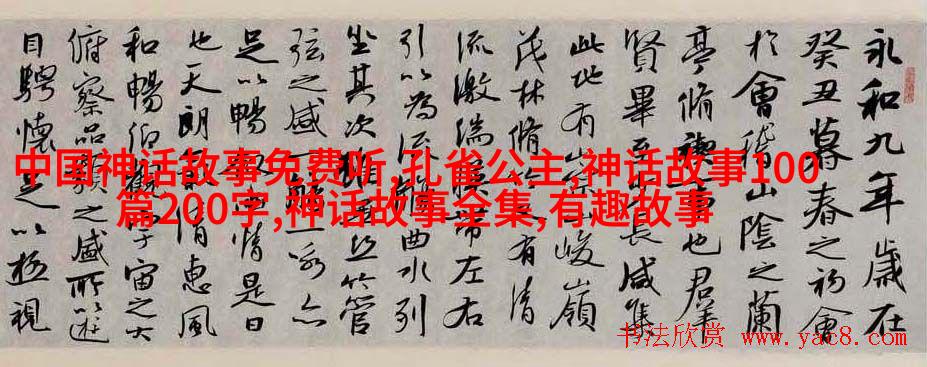 中国神话故事免费听,孔雀公主,神话故事100
篇200字,神话故事全集,有趣故事
永和九年歲在
癸丑暮春之初會
於會稽山陰之蘭
亭脩禊事也羣
賢畢至長咸集
此地有山峻嶺
茂林脩有清
流激湍帶左右
引以為流曲水列
坐其次絲竹管
弦之盛一詠亦
足以暢情是日
也天朗清惠風
和暢仰宙之大
俯察品類之盛所以遊
目騁懷足以極視
书法欣赏 www.yac8.com